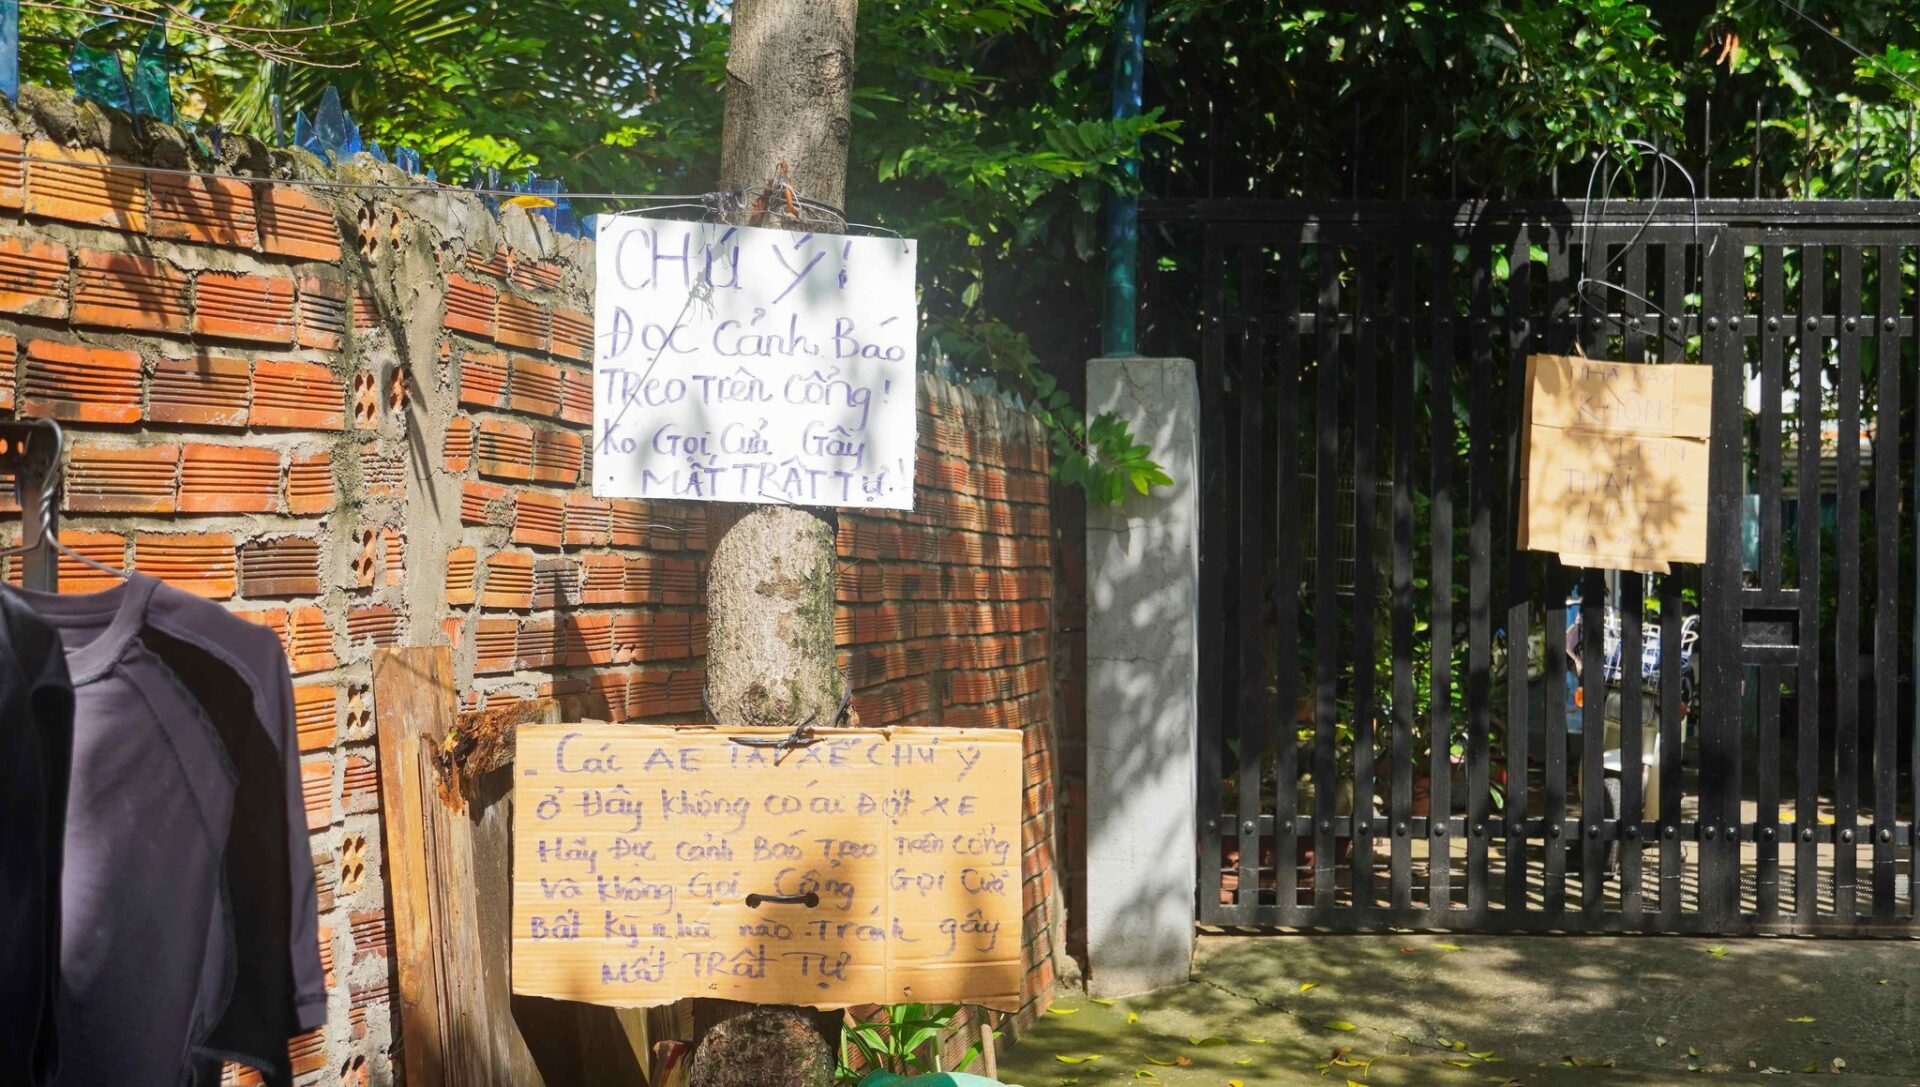 CHÚ Ý!
Đọc cảnh Báo
TReo Trên cổng!
Ko Gọi Cửa Gây
MẤT TRẬT TỰ!
- Các AE TÀI XẾ CHÚ Ý
ở Đây không có ai Đặt XE
Hãy Đọc cảnh Báo Treo Trên cổng
và không Gọi Cổng GỌI Cửa
Bất Kỳ nhà nào. Tránh gây
MẤT TRẬT TỰ
NHÀ NÀY
KHÔNG